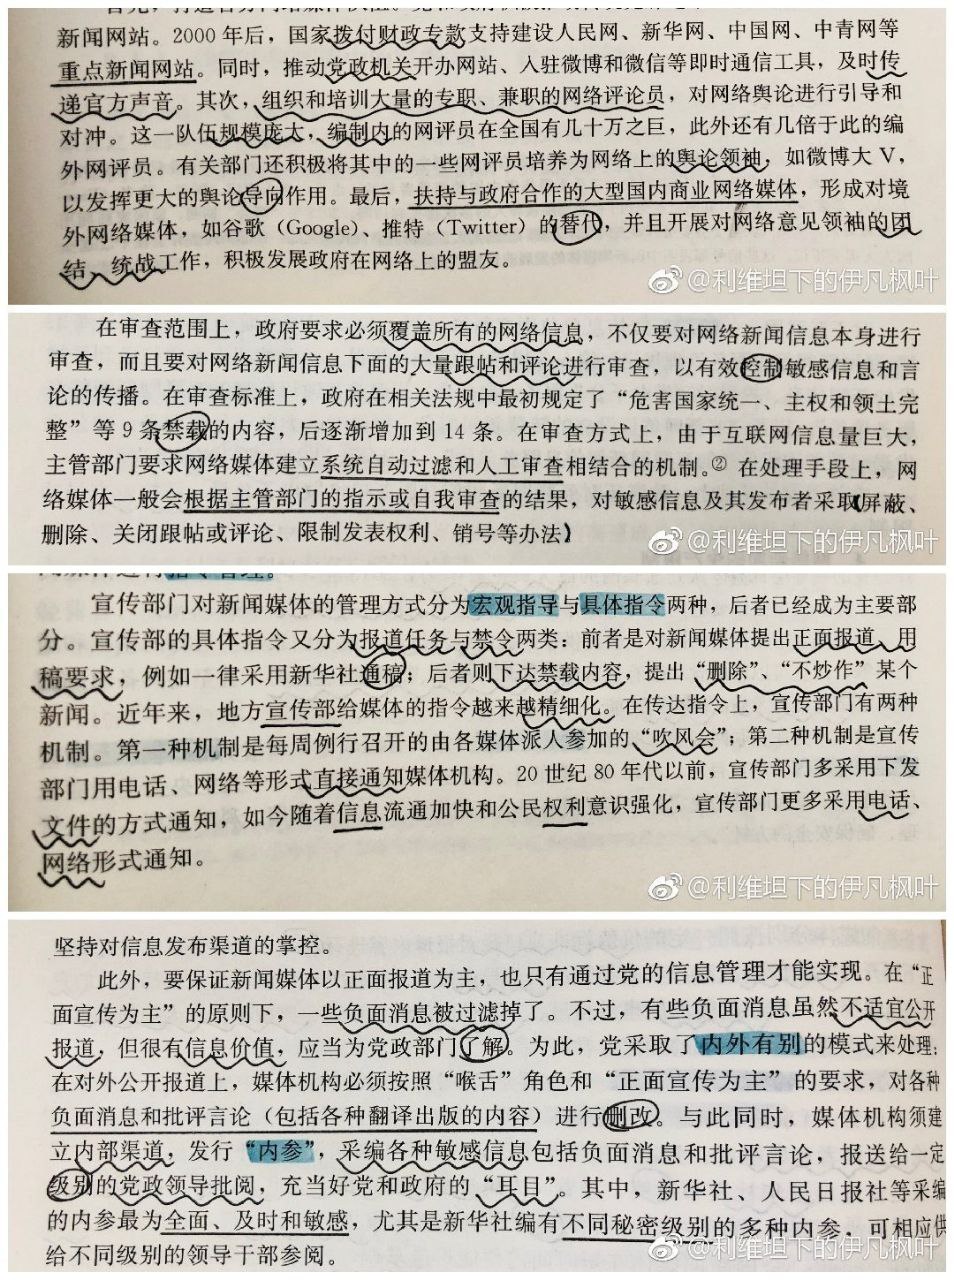 新闻网站。2000年后，国家拨付财政专款支持建设人民网、新华网、中国网、中青网等
重点新闻网站。同时，推动党政机关开办网站、入驻微博和微信等即时通信工具，及时传
递官方声音。其次，组织和培训大量的专职、兼职的网络评论员，对网络舆论进行引导和
对冲。这一队伍规模庞大，编制内的网评员在全国有几十万之巨，此外还有几倍于此的编
外网评员。有关部门还积极将其中的一些网评员培养为网络上的舆论领袖，如微博大V，
以发挥更大的舆论导向作用。最后，扶持与政府合作的大型国内商业网络媒体，形成对境
外网络媒体，如谷歌（Google）、推特（Twitter）的替代，并且开展对网络意见领袖的团
结、统战工作，积极发展政府在网络上的盟友。
@利维坦下的伊凡枫叶
在审查范围上，政府要求必须覆盖所有的网络信息，不仅要对网络新闻信息本身进行
审查，而且要对网络新闻信息下面的大量跟帖和评论进行审查，以有效控制敏感信息和言
论的传播。在审查标准上，政府在相关法规中最初规定了“危害国家统一、主权和领土完
整”等9条禁载的内容，后逐渐增加到14条。在审查方式上，由于互联网信息量巨大，
主管部门要求网络媒体建立系统自动过滤和人工审查相结合的机制。②在处理手段上，网
络媒体一般会根据主管部门的指示或自我审查的结果，对敏感信息及其发布者采取屏蔽、
删除、关闭跟帖或评论、限制发表权利、销号等办法
@利维坦下的伊凡枫叶
宣传部门对新闻媒体的管理方式分为宏观指导与具体指令两种，后者已经成为主要部
分。宣传部的具体指令又分为报道任务与禁令两类：前者是对新闻媒体提出正面报道、用
稿要求，例如一律采用新华社通稿；后者则下达禁载内容，提出“删除”、“不炒作”某个
新闻。近年来，地方宣传部给媒体的指令越来越精细化。在传达指令上，宣传部门有两种
机制。第一种机制是每周例行召开的由各媒体派人参加的“吹风会”；第二种机制是宣传
部门用电话、网络等形式直接通知媒体机构。20世纪80年代以前，宣传部门多采用下发
文件的方式通知，如今随着信息流通加快和公民权利意识强化，宣传部门更多采用电话、
网络形式通知。
@利维坦下的伊凡枫叶
坚持对信息发布渠道的掌控。
此外，要保证新闻媒体以正面报道为主，也只有通过党的信息管理才能实现。在“正
面宣传为主”的原则下，一些负面消息被过滤掉了。不过，有些负面消息虽然不适宜公开
报道，但很有信息价值，应当为党政部门了解。为此，党采取了内外有别的模式来处理：
在对外公开报道上，媒体机构必须按照“喉舌”角色和“正面宣传为主”的要求，对各种
负面消息和批评言论（包括各种翻译出版的内容）进行删改。与此同时，媒体机构须建
立内部渠道，发行“内参”，采编各种敏感信息包括负面消息和批评言论，报送给一定
级别的党政领导批阅，充当好党和政府的“耳目”。其中，新华社、人民日报社等采编
的内参最为全面、及时和敏感，尤其是新华社编有不同秘密级别的多种内参，可相应供
给不同级别的领导干部参阅。
@利维坦下的伊凡枫叶